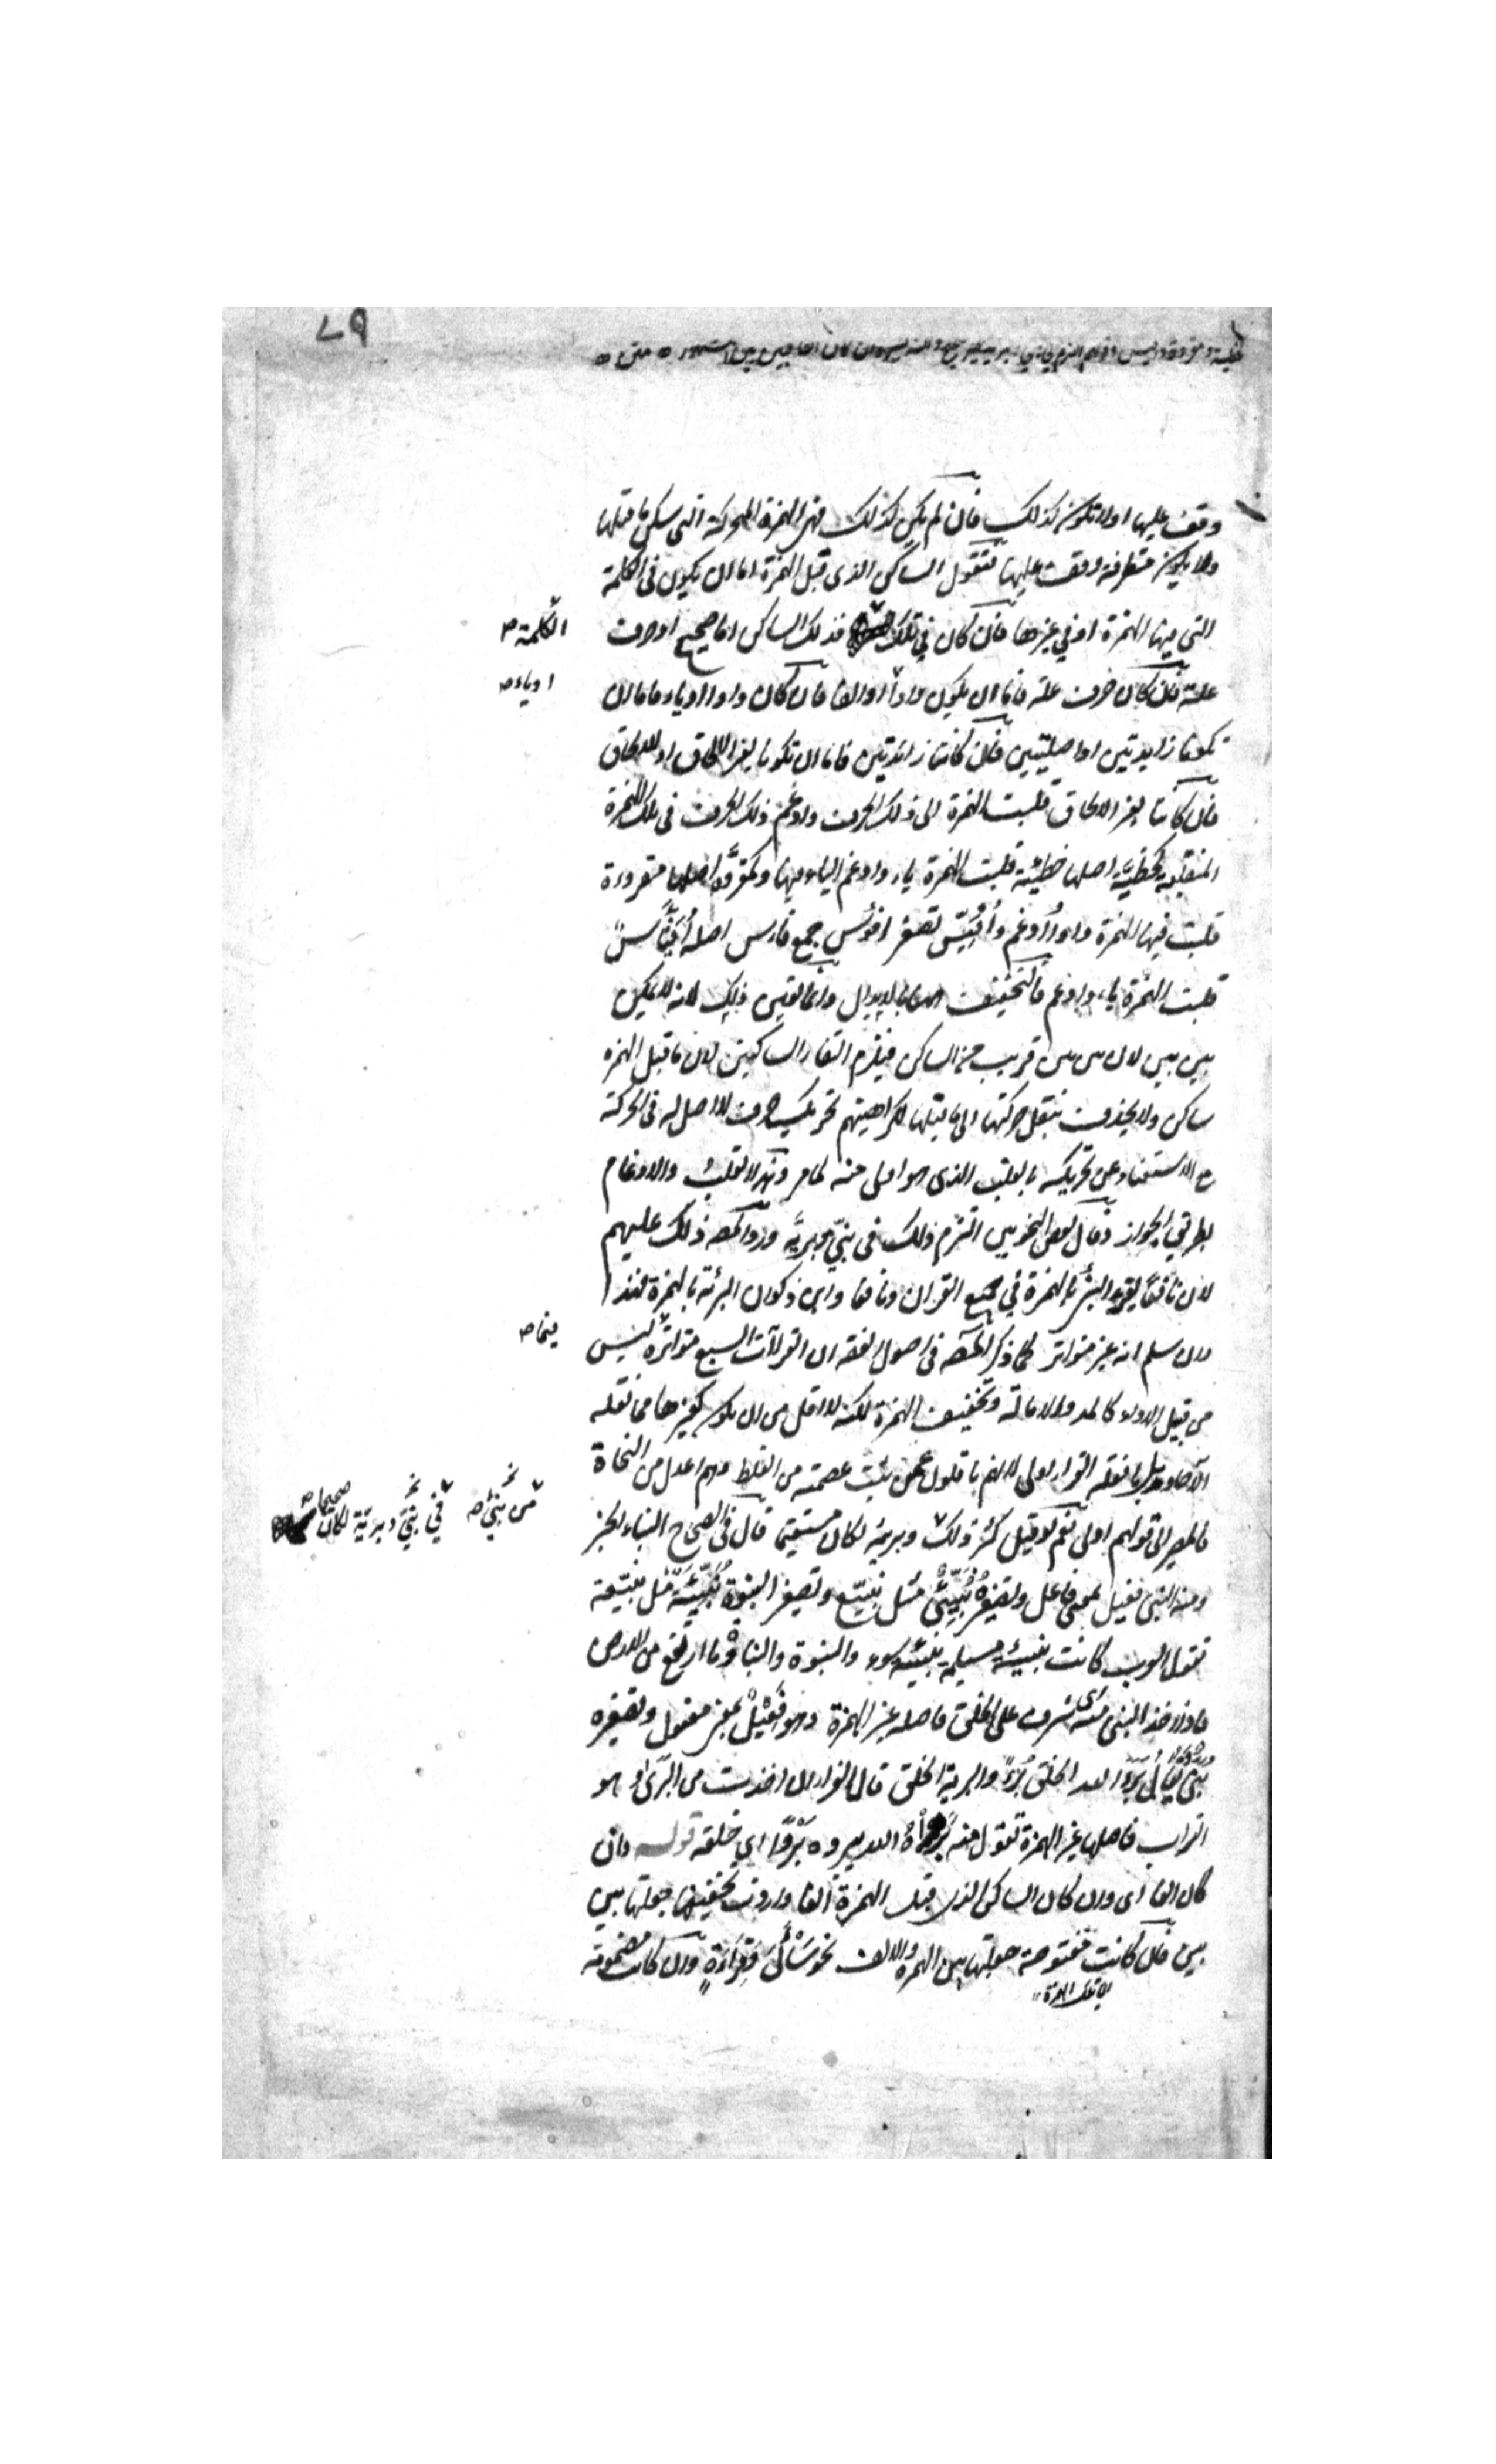 ٧٩
وقف عليها اولا تكون كذلك فان لم يكن كذلك فهى الهمزة المتحركة التى سكن ما قبلها
ولا يكون متطرفة وقف عليها فنقول الساكن الذى قبل الهمزة اما ان يكون فى الكلمة
التى فيها الهمزة او فى غيرها فان كان فى تلك فذلك الساكن اما صحيح او حرف
الكلمة صح
علة فان كان حرف علة فاما ان يكون واوا او الفا فان كان واوا او ياء فاما ان
او ياء صح
تكونا زايدتين او اصليتين فان كانتا زائدتين فاما ان تكونا لغير الالحاق او للالحاق
فان كانتا لغير الالحاق قلبت الهمزة الى ذلك الحرف وادغم ذلك الحرف فى تلك الهمزة
المنقلبة كخطيّة اصلها خطيئة قلبت الهمزة ياء وادغم الياء فيها وكمقروّة اصلها مقروءة
قلبت فيها الهمزة واوا وادغم وأُفَيّس تصغير افؤس جمع فاس اصله أُفَيْئِس
قلبت الهمزة ياء وادغم فالتخفيف ههنا بالابدال وانما تعين ذلك لانه لا يمكن
بين بين لان بين بين قريب من الساكن فيلزم التقاء الساكنين لان ما قبل الهمزة
ساكن ولا يحذف بنقل حركتها الى ما قبلها لكراهيتهم تحريك حرف لا اصل له فى الحركة
مع الاستغناء عن تحريكه بالقلب الذى هو اولى منه لما مر وهذا القلب والادغام
بطريق الجواز وقال بعض النحويين التزم ذلك فى نبىّ وبريّة ورد المصـ ذلك عليهم
لان نافعا يقرء النبئ بالهمزة فى جميع القران ونافعا وابن ذكوان البرئة بالهمزة فهذا
وان سلم انه غير متواتر كما ذكر المصـ فى اصول الفقه ان القراآت السبع متواترة ليس
فيما صح
من قبيل الاداء كالمد والامالة وتخفيف الهمزة لكنه لا اقل من ان يكون كغيرها مما نقله
الآحاد وما نقله القراء اولى لانهم ناقلون عمن ثبت عصمته من الغلط وهم اعدل من النحاة
فالمصير الى قولهم اولى نعم لو قيل كثر ذلك وبرية لكان مستقيما قال فى الصحاح النباء الخبز
من نبئ صح
فى نبىّ وبريّة لكان صحيحا صح
ومنه النبى فعيل بمعنى فاعل وتصغيره نُبَيِّئٌ مثل نبيّع وتصغير النبوة نُبَيِّئَة مثل نبيّعة
تقول العرب كانت نبيئة مسيلمة نبيئة سوء والنبوة والنباوة ما ارتفع من الارض
فان اخذ النبى منه اى شرف على الخلق فاصله غير الهمزة وهو فَعِيْلٌ بمعنى مفعول وتصغيره
نُبَىّ يقال بَرَأَ الله الخلق بَرْءً والبرية الخلق قال الفراء ان اخذت من البَرَى وهو
التراب فاصلها غير الهمزة تقول منه بَرَاهُ الله يبروه بَرْوًا اى خلقه قوله وان
كان الفا اى وان كان الساكن الذى قبل الهمزة الفا واردت تخفيفها جعلتها بين
بين فان كانت مفتوحة جعلتها بين الهمزة والالف نحو سَائَلَ وَقِرَاءَةٍ وان كانت مضمومة
اى تلك الهمزة